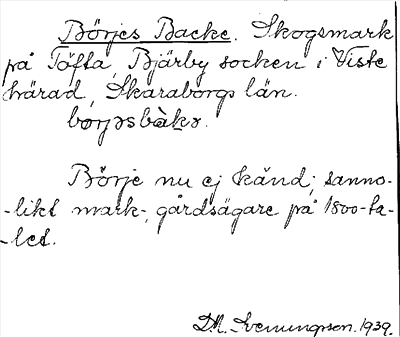 Börjes Backe. Skogsmark
på Töfta, Bjärby socken i Viste
härad, Skaraborgs län.
børjəsbàkə.
Börje nu ej känd; sanno-
-likt mark-, gårdsägare på 1800-ta-
-let.
D.M. Svenungsson. 1939.